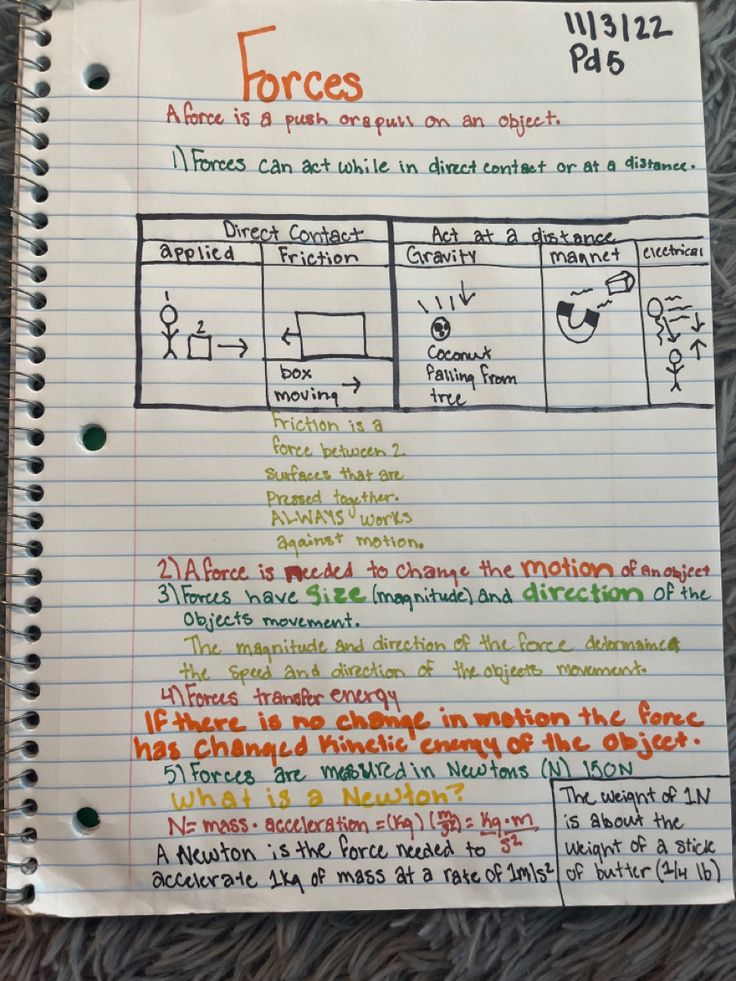 11/3/22
Pd 5
Forces
A force is a push or a pull on an object.
1) Forces can act while in direct contact or at a distance.
Direct Contact
Act at a distance
applied
Friction
Gravity
magnet
electrical
1
2
box
moving
Coconut
falling from
tree
Friction is a
force between 2
surfaces that are
pressed together.
ALWAYS works
against motion.
2) A force is needed to change the motion of an object
3) Forces have size (magnitude) and direction of the
objects movement.
The magnitude and direction of the force determaines
the speed and direction of the objects movement.
4) Forces transfer energy
If there is no change in motion the force
has changed kinetic energy of the object.
5) Forces are measured in Newtons (N) 150N
What is a Newton?
N = mass · acceleration = (kg) (m/s²) = kg·m/s²
A Newton is the force needed to
accelerate 1kg of mass at a rate of 1m/s²
The weight of 1N
is about the
weight of a stick
of butter (1/4 lb)